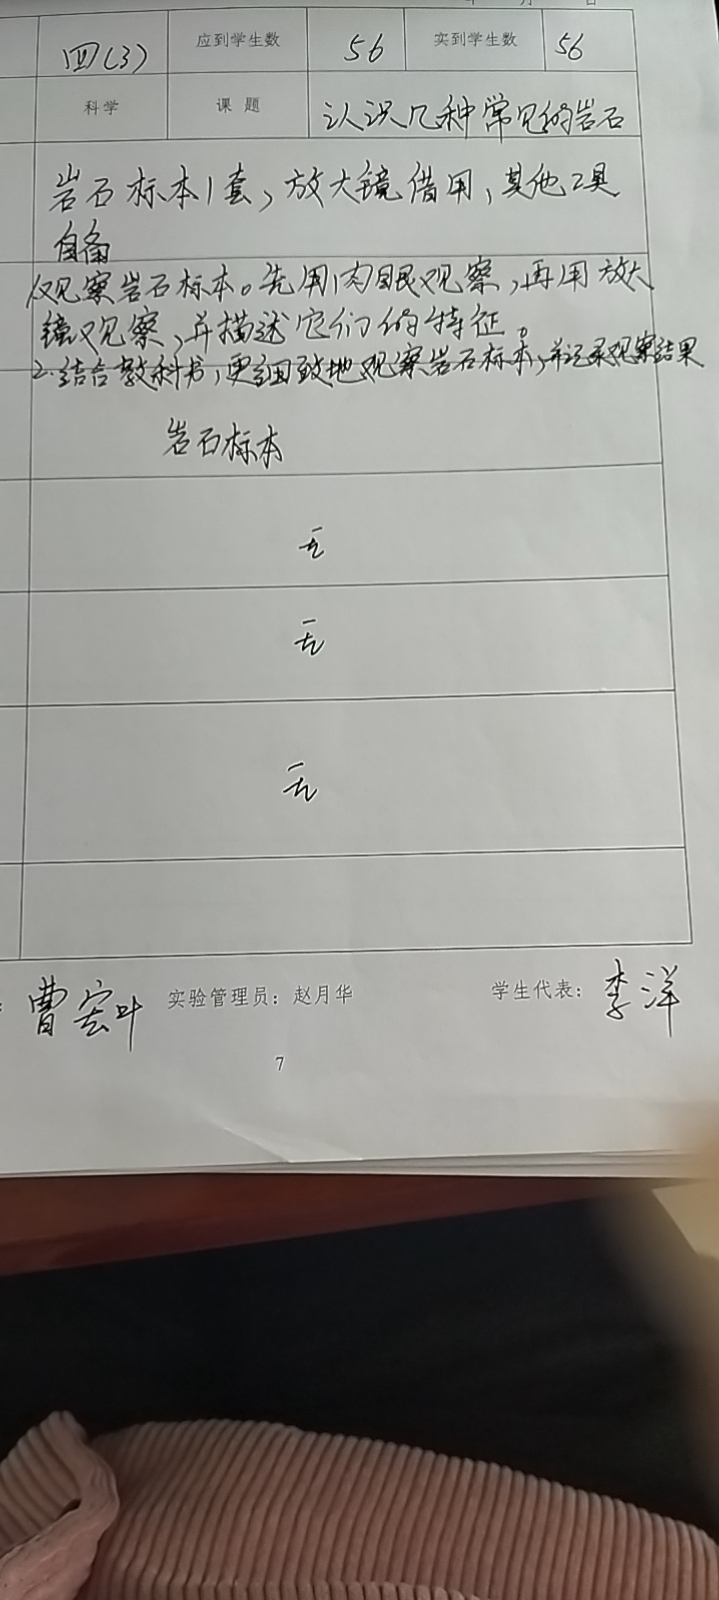 四(3) 应到学生数 56 实到学生数 56
科学 课题 认识几种常见的岩石
岩石标本1套，放大镜借用，其他工具
自备
观察岩石标本。先用肉眼观察，再用放大
镜观察，并描述它们的特征。
2.结合教科书，更细致地观察岩石标本，并记录观察结果
岩石标本
无
无
无
曹宏叶 实验管理员：赵月华 学生代表： 李洋
7